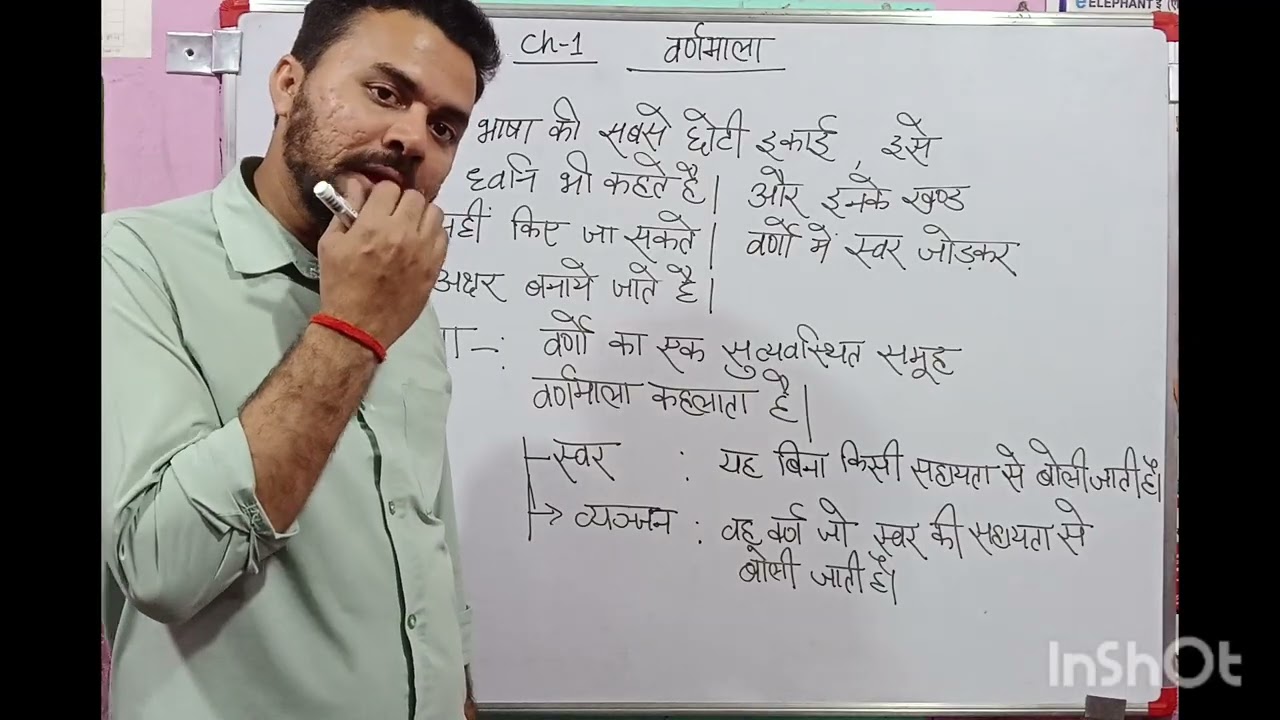 eELEPHANT
Ch-1 वर्णमाला
भाषा की सबसे छोटी इकाई, इसे
ध्वनि भी कहते है। और इनके खण्ड
नहीं किए जा सकते। वर्णो में स्वर जोड़कर
अक्षर बनाये जाते है।
वर्णो का एक सुव्यवस्थित समूह
वर्णमाला कहलाता है।
स्वर : यह बिना किसी सहायता से बोली जाती है।
व्यञ्जन : वह वर्ण जो स्वर की सहायता से
बोली जाती है।
InShOt